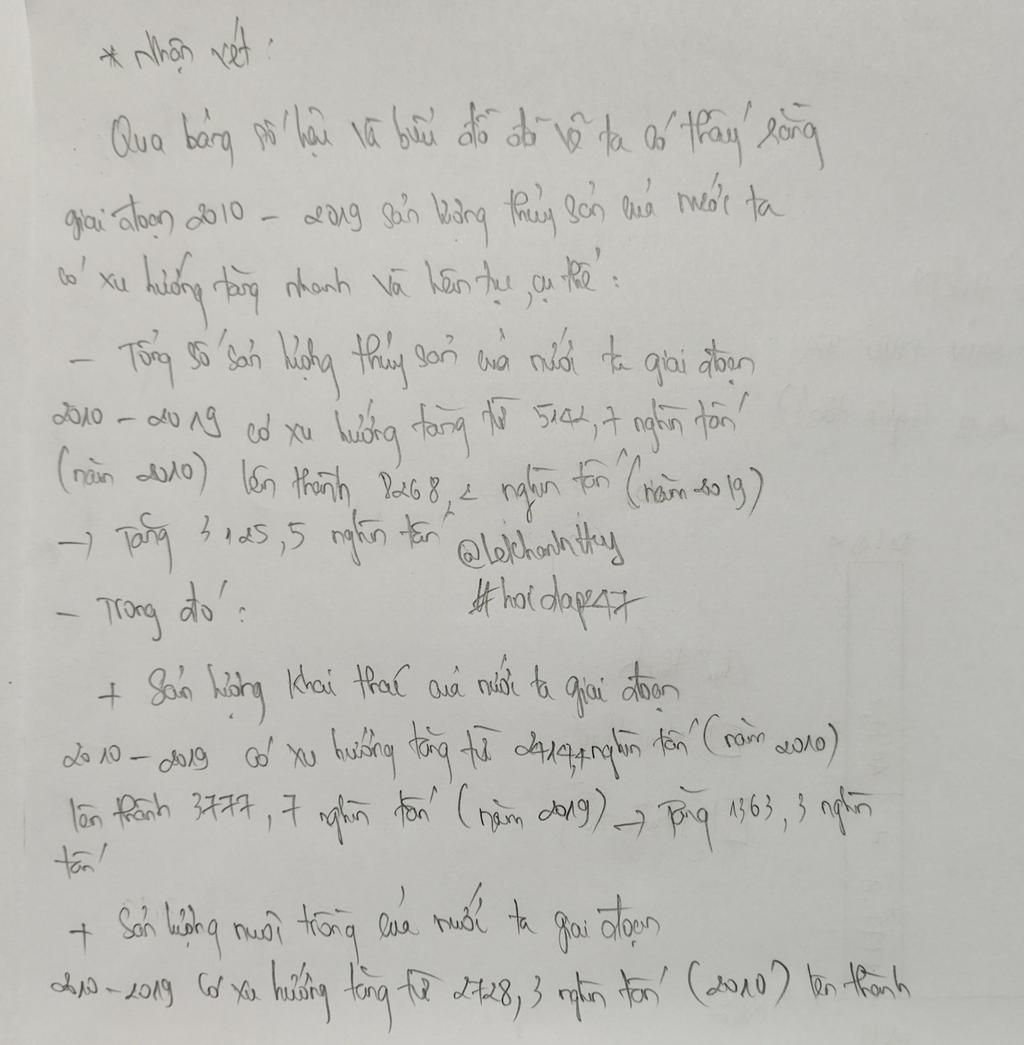 * Nhận xét:
Qua bảng số liệu và biểu đồ đã vẽ ta có thấy rằng
giai đoạn 2010 - 2019 sản lượng thủy sản của nước ta
có xu hướng tăng nhanh và liên tục, cụ thể:
- Tổng số sản lượng thủy sản của nước ta giai đoạn
2010 - 2019 có xu hướng tăng từ 5142,7 nghìn tấn
(năm 2010) lên thành 8268,2 nghìn tấn (năm 2019)
→ Tăng 3125,5 nghìn tấn @lekhanhHuy
- Trong đó: #hoidap247
+ Sản lượng khai thác của nước ta giai đoạn
2010 - 2019 có xu hướng tăng từ nghìn tấn (năm 2010)
lên thành 3777,7 nghìn tấn (năm 2019) → Tăng 1363,3 nghìn
tấn
+ Sản lượng nuôi trồng của nước ta giai đoạn
2010 - 2019 có xu hướng tăng từ 2728,3 nghìn tấn (2010) lên thành